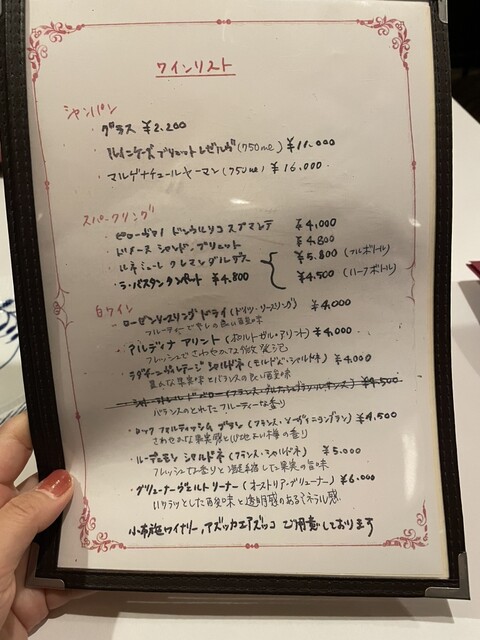 ワインリスト
シャンパン
・グラス ¥2,200
・ルイニケーズ ブリュット レゼルヴ(750ml) ¥11,000
・マルゲナチュールヤーマン(750ml) ¥16,000
スパークリング
・ピローヴァノ ドンウルリコ スプマンテ ¥4,000
・ドメーヌ シャンドン, ブリュット ¥4,800
・ルネミューレ クレマンダルザス ¥5,800 (フルボトル)
・ラ・パスタン クンパート ¥4,800 ¥4,500 (ハーフボトル)
白ワイン
・ローゼンリースリング ドライ (ドイツ・リースリング) ¥4,000
フルーティーで の良い酸味
・アルディナ アリント (ポルトガル・アリント) ¥4,000
フレッシュでさわやかな微発泡
・ラダチーンヴィレージ シャルドネ (モルドバ・シャルドネ) ¥4,000
豊かな果実味とバランスの良い酸味
¥4,500
バランスのとれたフルーティーな香り
・ロック ブラン (フランス・ソーヴィニヨンブラン) ¥4,500
さわやかな果実感と心地よい樽の香り
・ルーデュモン シャルドネ (フランス・シャルドネ) ¥5,000
フレッシュな香りと凝縮した果実の旨味
・グリューナーヴェルトリーナー (オーストリア・グリューナー) ¥6,000
いきいきとした酸味と透明感のあるミネラル感
小布施ワイナリー, アズッカエアズッコ ご用意しております